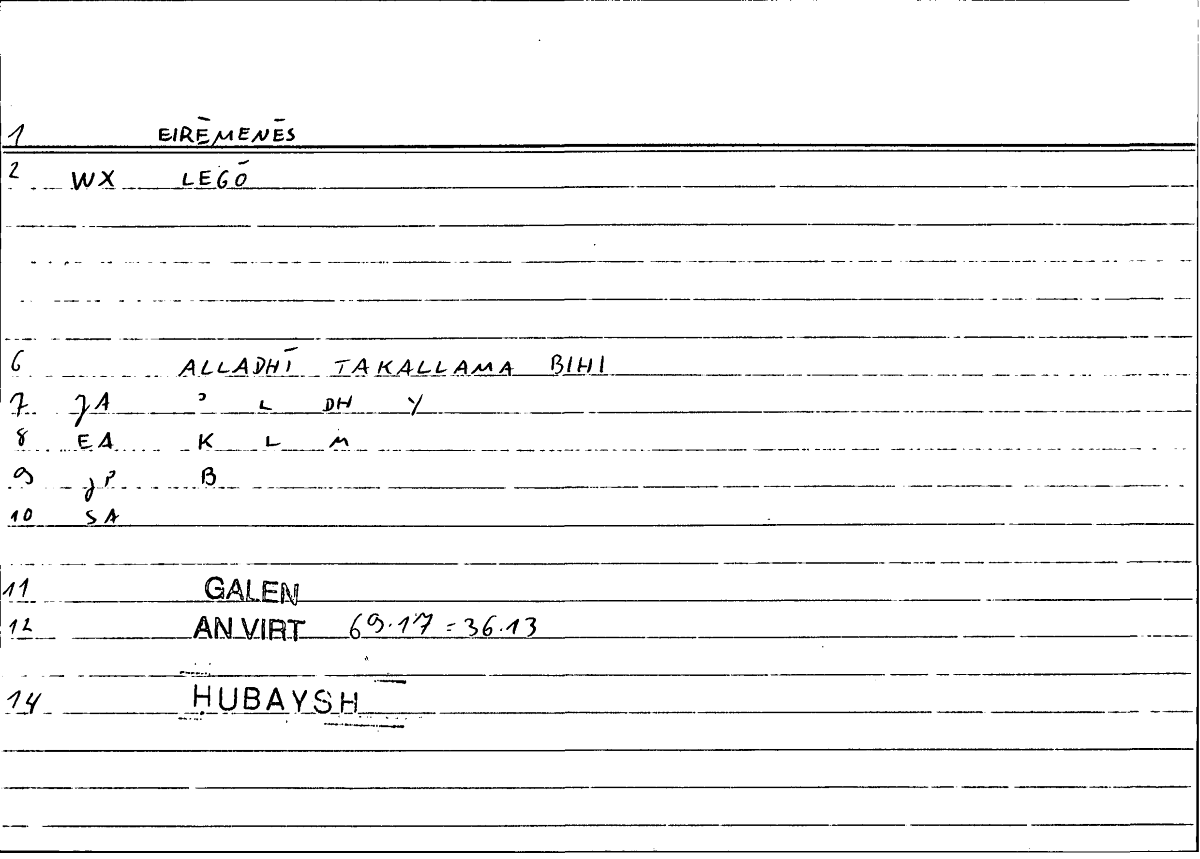 1 EIRĒMENĒS
2 WX LEGŌ
6 ALLADHĪ TAKALLAMA BIHI
7 JA ʾ L DH Y
8 EA K L M
9 JP B
10 SA
11 GALEN
12 AN VIRT 69.17 = 36.13
14 ḤUBAYSH